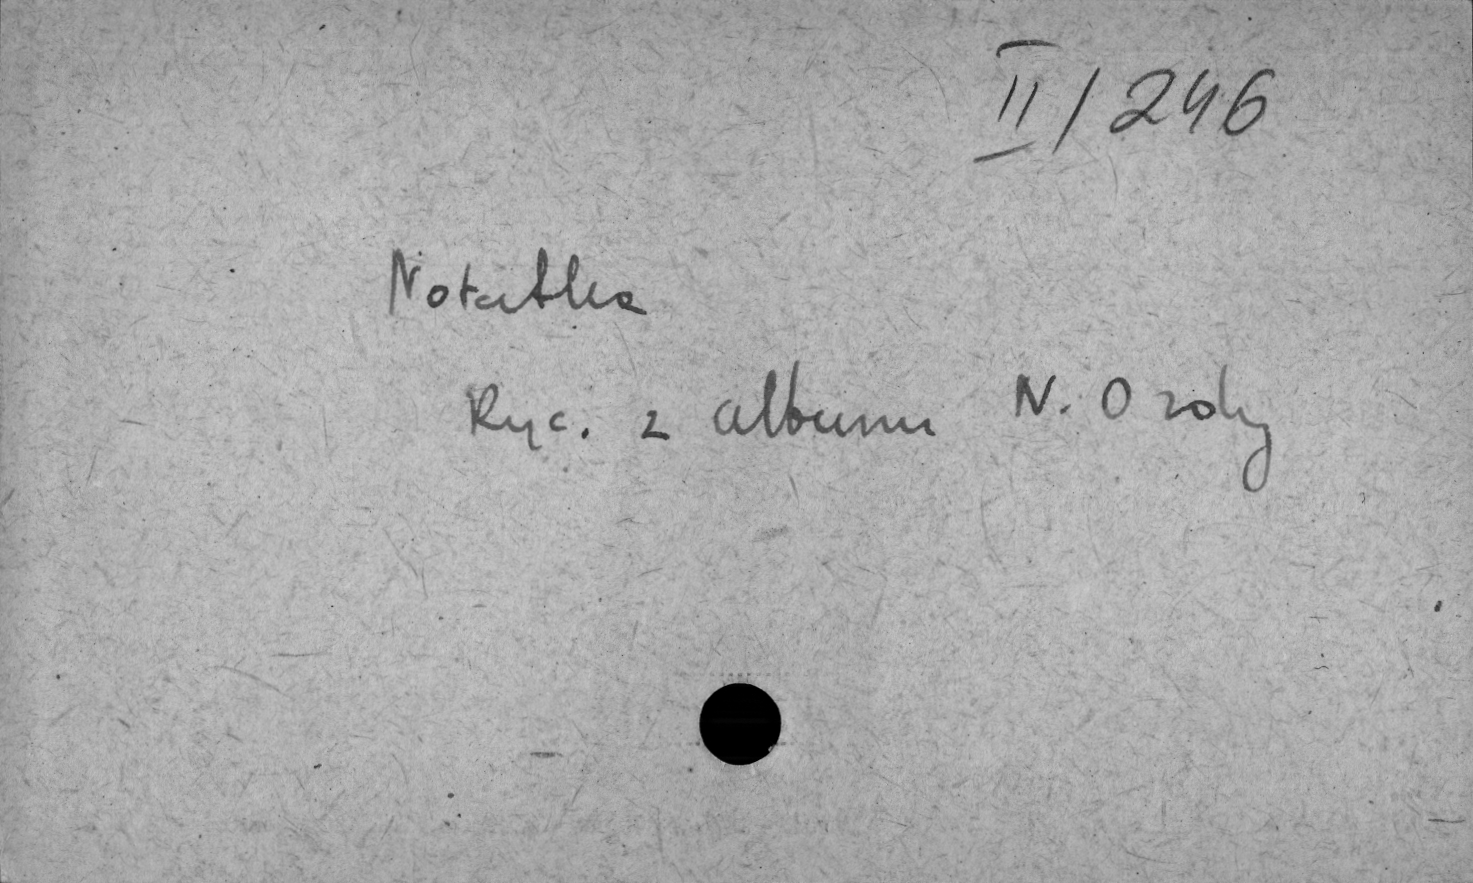 II/246
Notatka
Ryc. z albumu N. Ordy